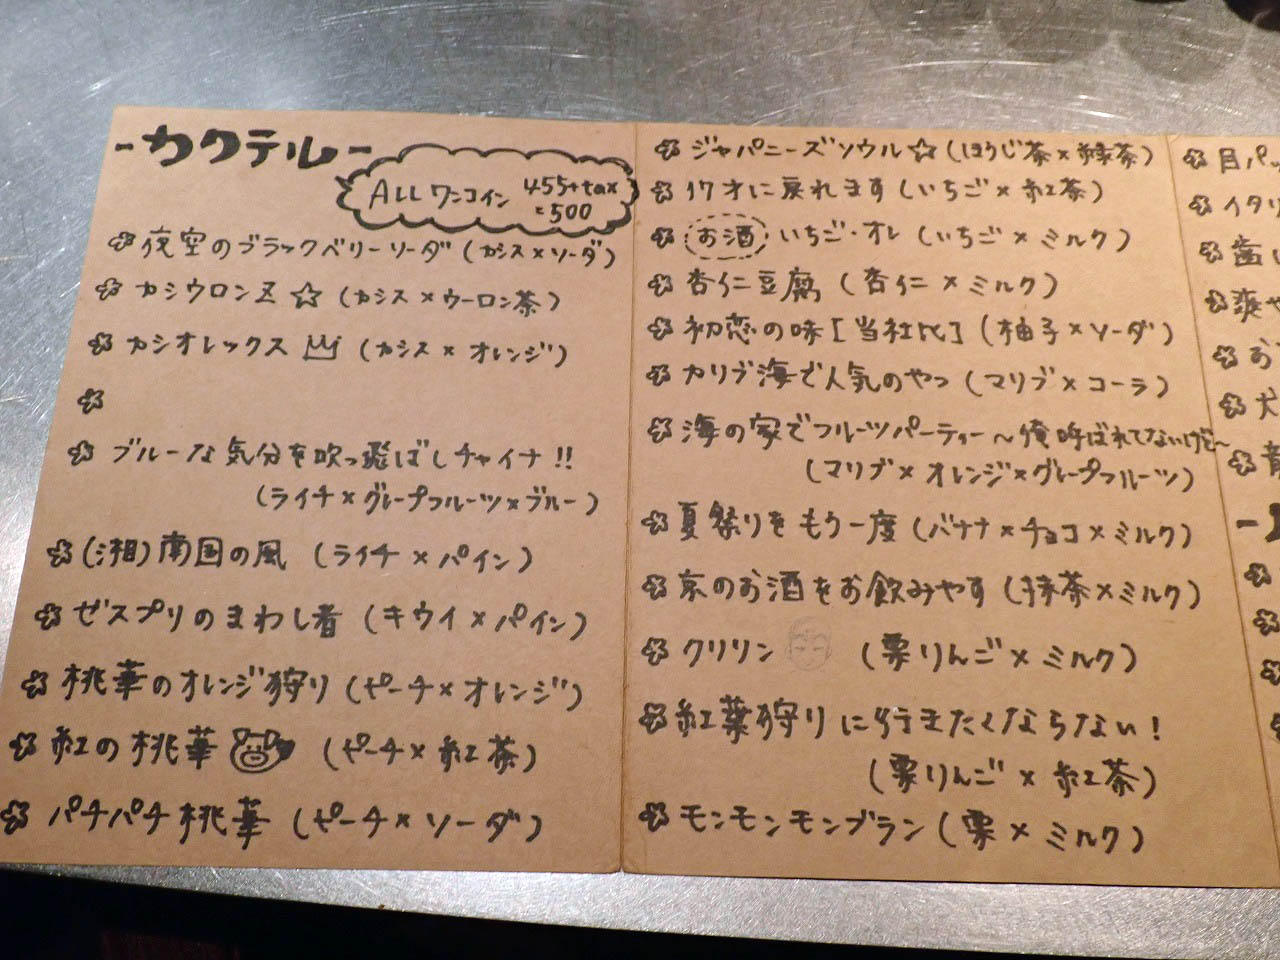 -カクテル-
ALL ワンコイン 455+tax
=500
夜空のブラックベリーソーダ (カシス×ソーダ)
カシウロンZ ☆ (カシス×ウーロン茶)
カシオレックス (カシス × オレンジ)
ブルーな気分を吹っ飛ばしチャイナ!!
(ライチ×グレープフルーツ×ブルー)
(湘)南国の風 (ライチ × パイン)
ゼスプリのまわし者 (キウイ×パイン)
桃華のオレンジ狩り (ピーチ×オレンジ)
紅の桃華 (ピーチ× 紅茶)
パチパチ桃華 (ピーチ× ソーダ)
ジャパニーズソウル☆ (ほうじ茶×緑茶)
イケオに戻れます (いちご× 紅茶)
お酒 いちご・オレ (いちご × ミルク)
杏仁豆腐 (杏仁 × ミルク)
初恋の味 [当社比] (柚子×ソーダ)
カリブ海で人気のやつ (マリブ×コーラ)
海の家でフルーツパーティー〜俺呼ばれてないけど〜
(マリブ×オレンジ×グレープフルーツ)
夏祭りをもう一度 (バナナ×チョコ×ミルク)
京のお酒をお飲みやす (抹茶×ミルク)
クリリン (栗りんご× ミルク)
紅葉狩りに行きたくならない!
(栗りんご × 紅茶)
モンモンモンブラン (栗 × ミルク)
目パッ
イタリ
歯
爽や
お
犬